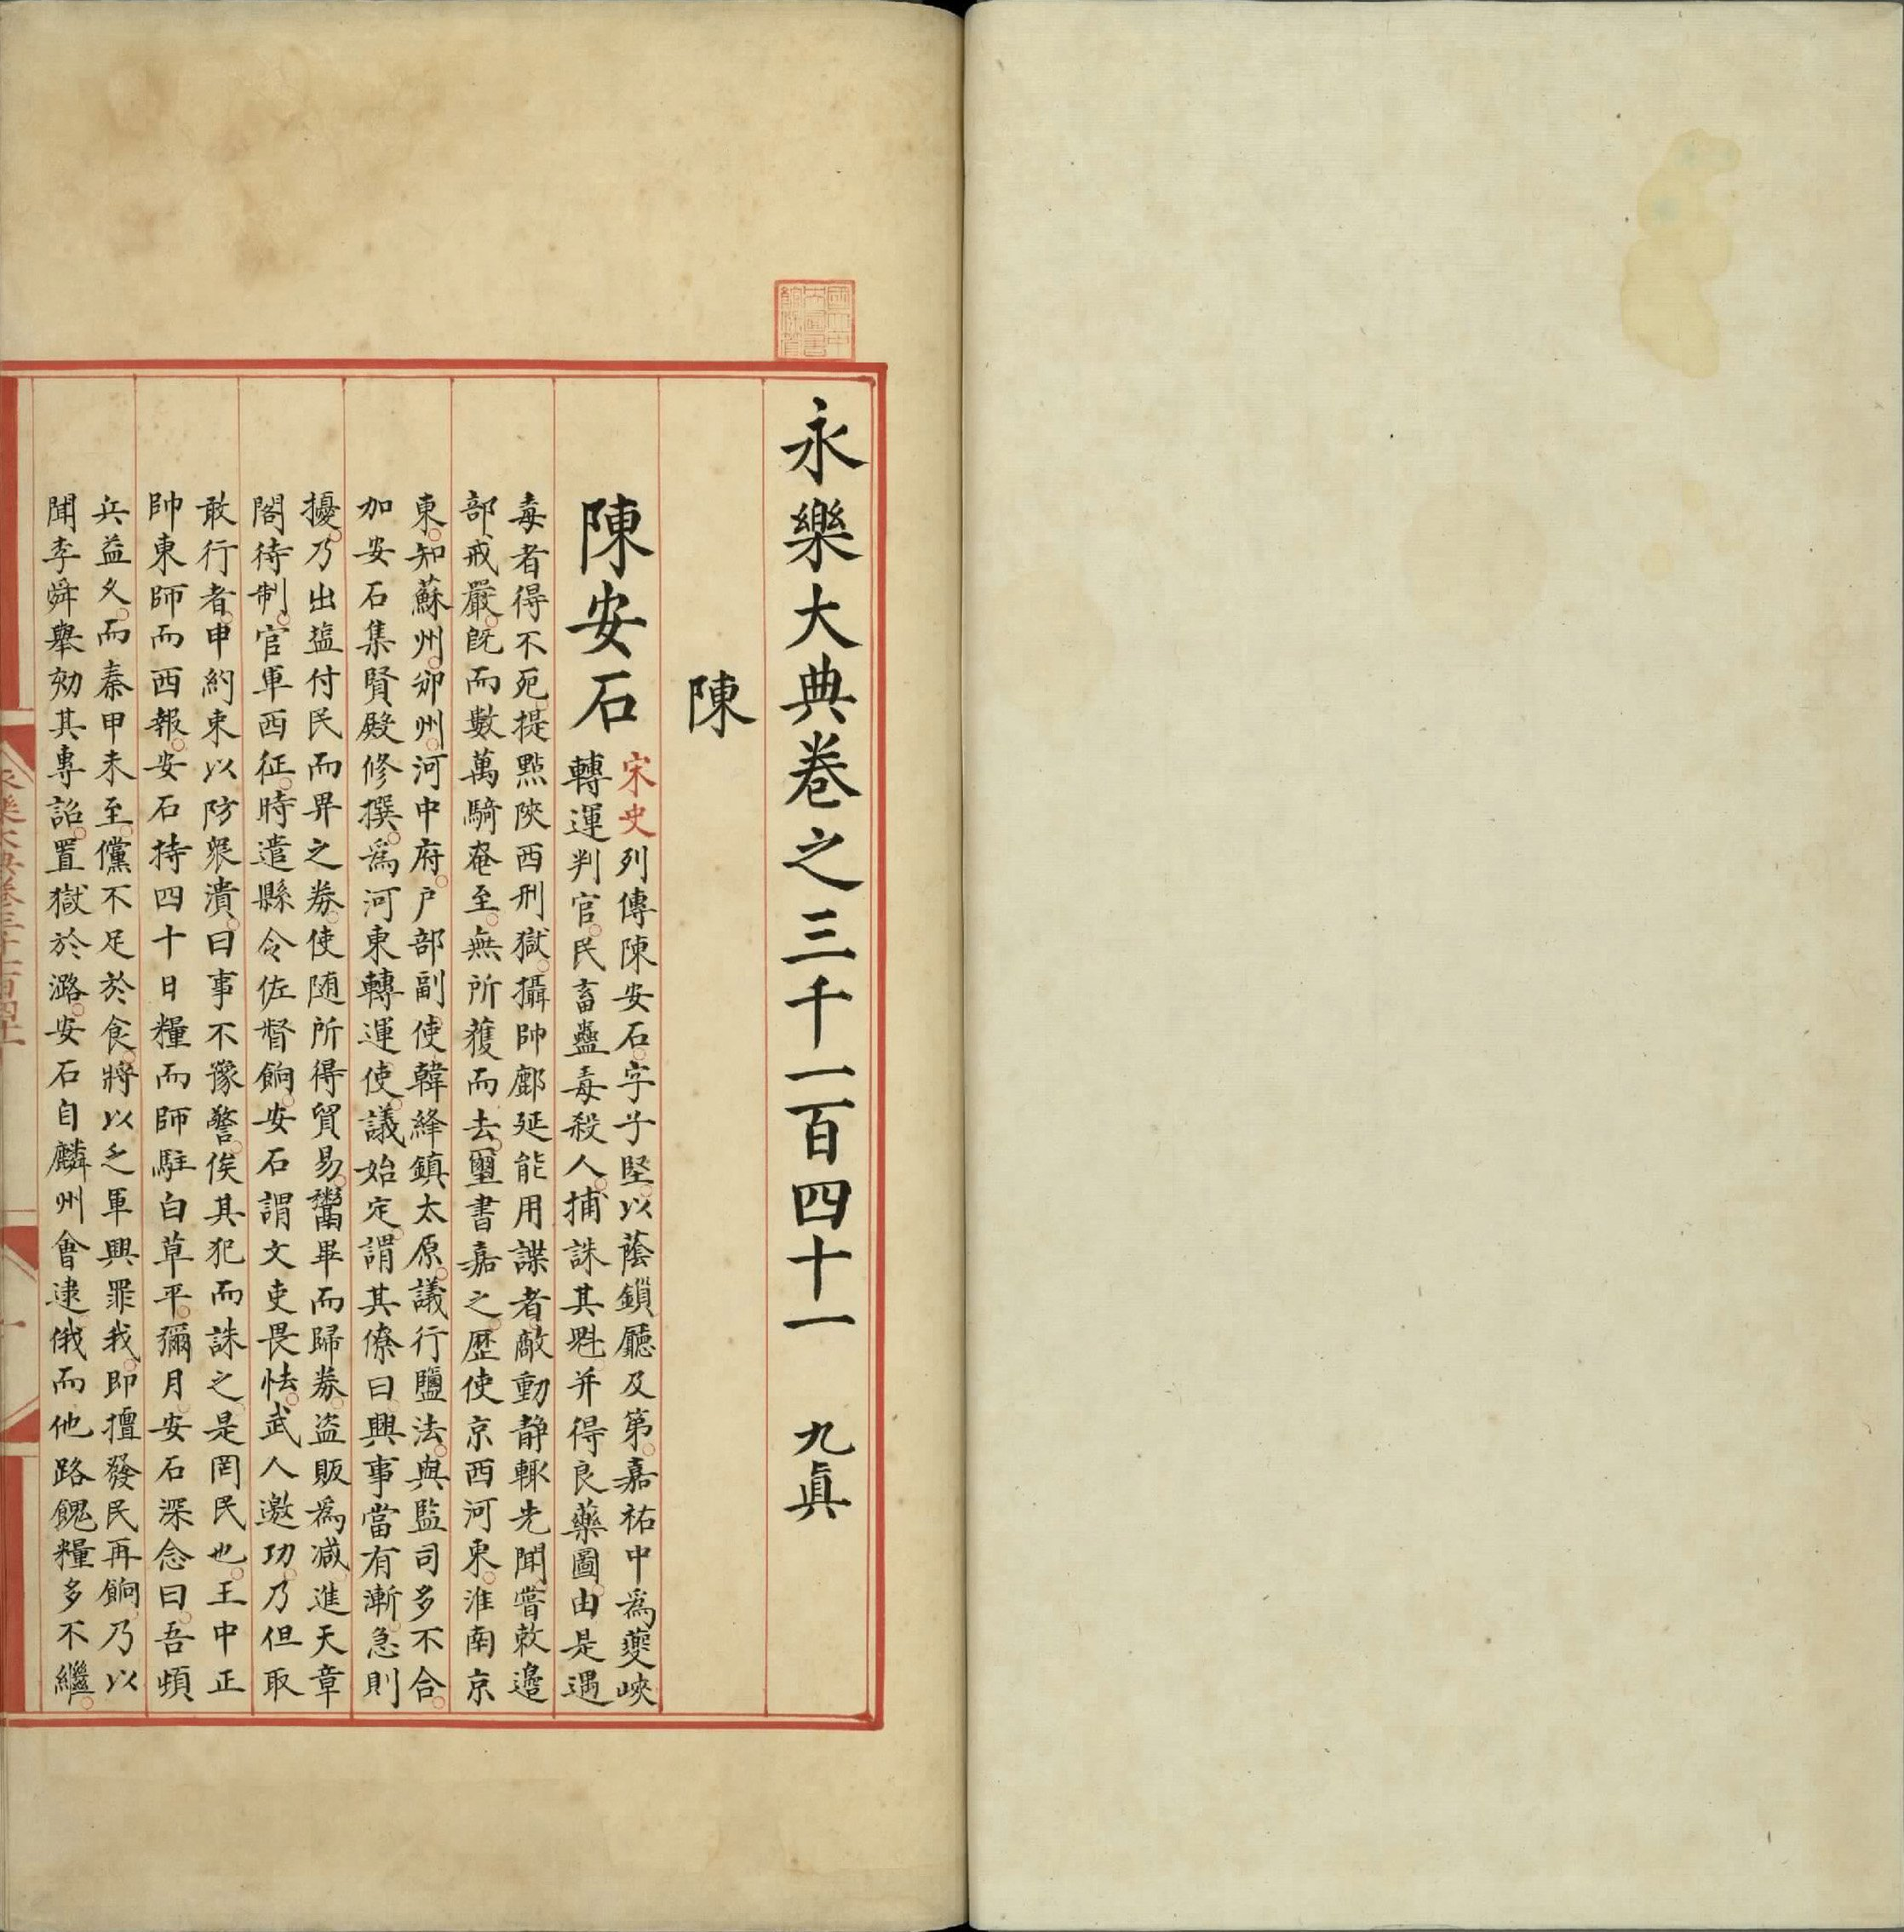 永樂大典卷之三千一百四十一　九真
陳
陳安石
宋史列傳陳安石字子堅以蔭鎻廳及第嘉祐中為夔峽
轉運判官民畜蠱毒殺人捕誅其魁并得良藥圖由是遇
毒者得不死提點陝西刑獄攝帥鄜延能用諜者敵動静輙先聞嘗敕邊
部戒嚴旣而數萬騎奄至無所獲而去璽書嘉之歷使京西河東淮南京
東知蘇州邠州河中府户部副使韓絳鎮太原議行鹽法與監司多不合
加安石集賢殿修撰為河東轉運使議始定謂其僚曰興事當有漸急則
擾乃出塩付民而畀之券使随所得貿易鬻畢而歸券盗販為减進天章
閣待制官軍西征時遣縣令佐督餉安石謂文吏畏怯武人邀功乃但取
敢行者申約束以防衆潰曰事不豫警俟其犯而誅之是罔民也王中正
帥東師而西報安石持四十日糧而師駐白草平彌月安石深念曰吾頓
兵益久而秦甲未至儻不足於食將以乏軍興罪我即擅發民再餉乃以
聞李舜舉劾其專詔置獄於潞安石自麟州會逮俄而他路餽糧多不繼
永樂大典卷三千一百四十一
一